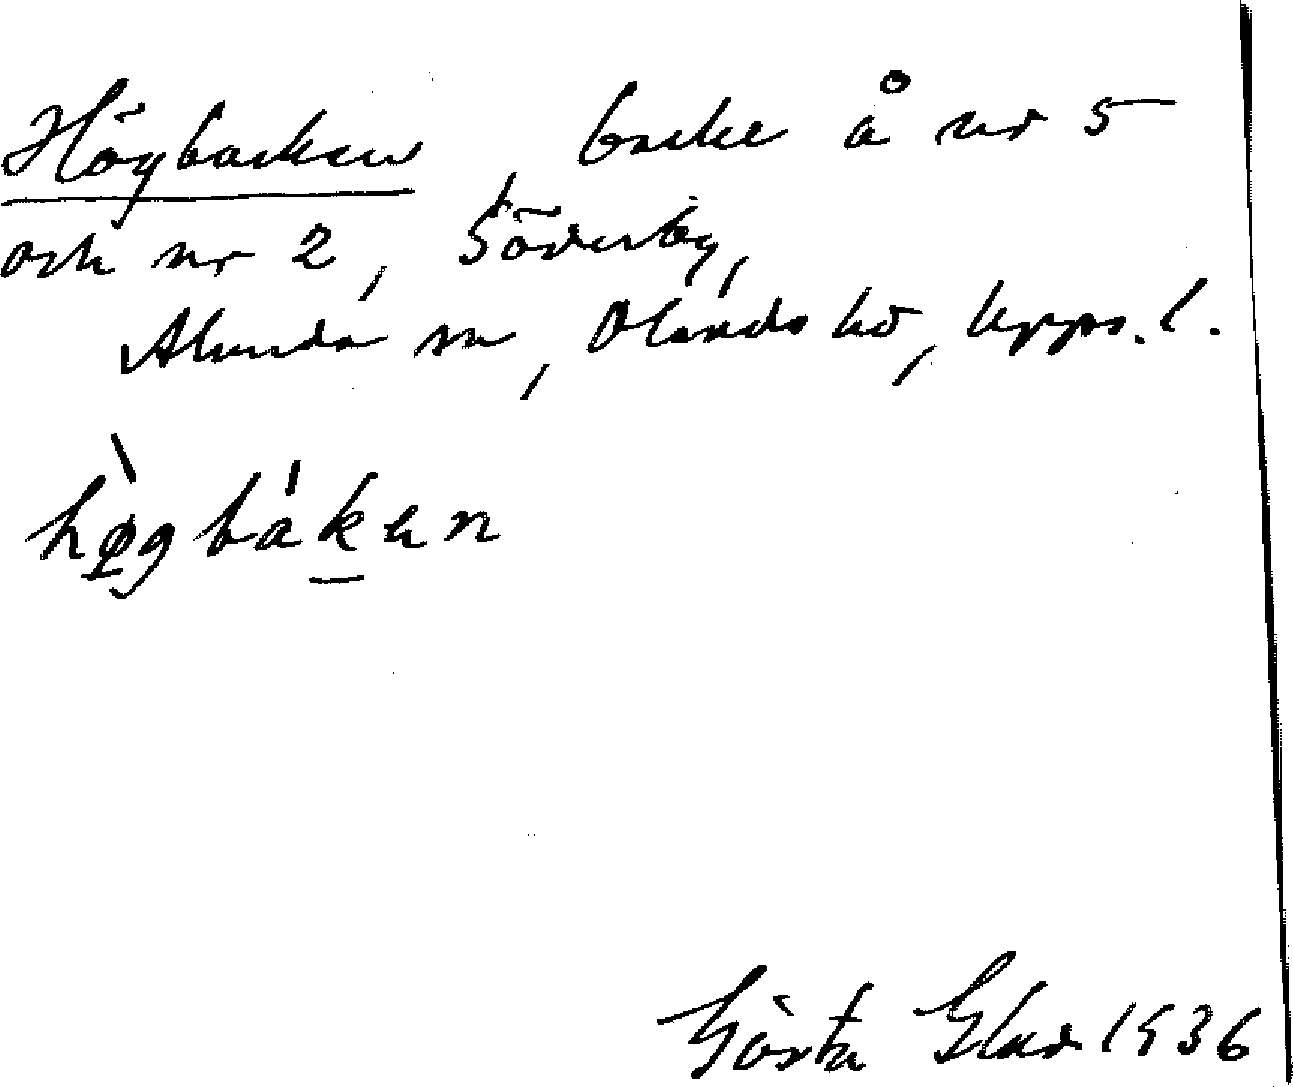 Högbacken, backe å nr 5
och nr 2, Söderby,
Alunda sn, Olands hd, Upps. l.
hø̀gbákan
Gösta Glad 1936